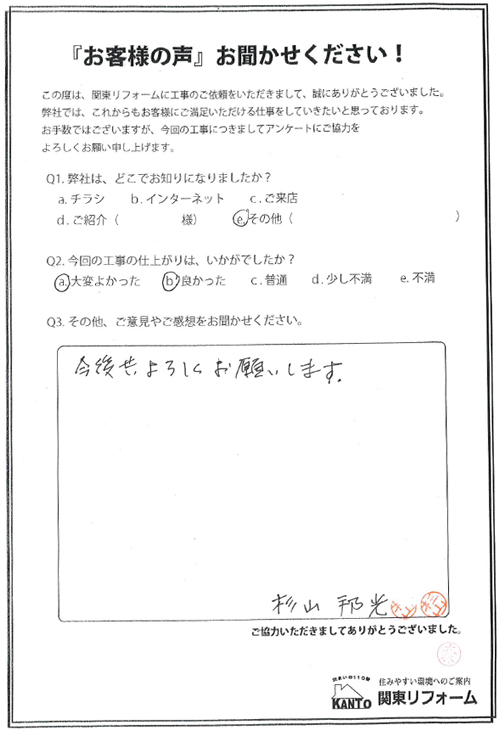 『お客様の声』お聞かせください！
この度は、関東リフォームに工事のご依頼をいただきまして、誠にありがとうございました。
弊社では、これからもお客様にご満足いただける仕事をしていきたいと思っております。
お手数ではございますが、今回の工事につきましてアンケートにご協力を
よろしくお願い申し上げます。
Q1. 弊社は、どこでお知りになりましたか？
a. チラシ b. インターネット c. ご来店
d. ご紹介（ 様） e. その他（ ）
Q2. 今回の工事の仕上がりは、いかがでしたか？
a. 大変よかった b. 良かった c. 普通 d. 少し不満 e. 不満
Q3. その他、ご意見やご感想をお聞かせください。
今後共よろしくお願いします。
杉山 邦光
ご協力いただきましてありがとうございました。
住まいの110番
KANTO
住みやすい環境へのご案内
関東リフォーム